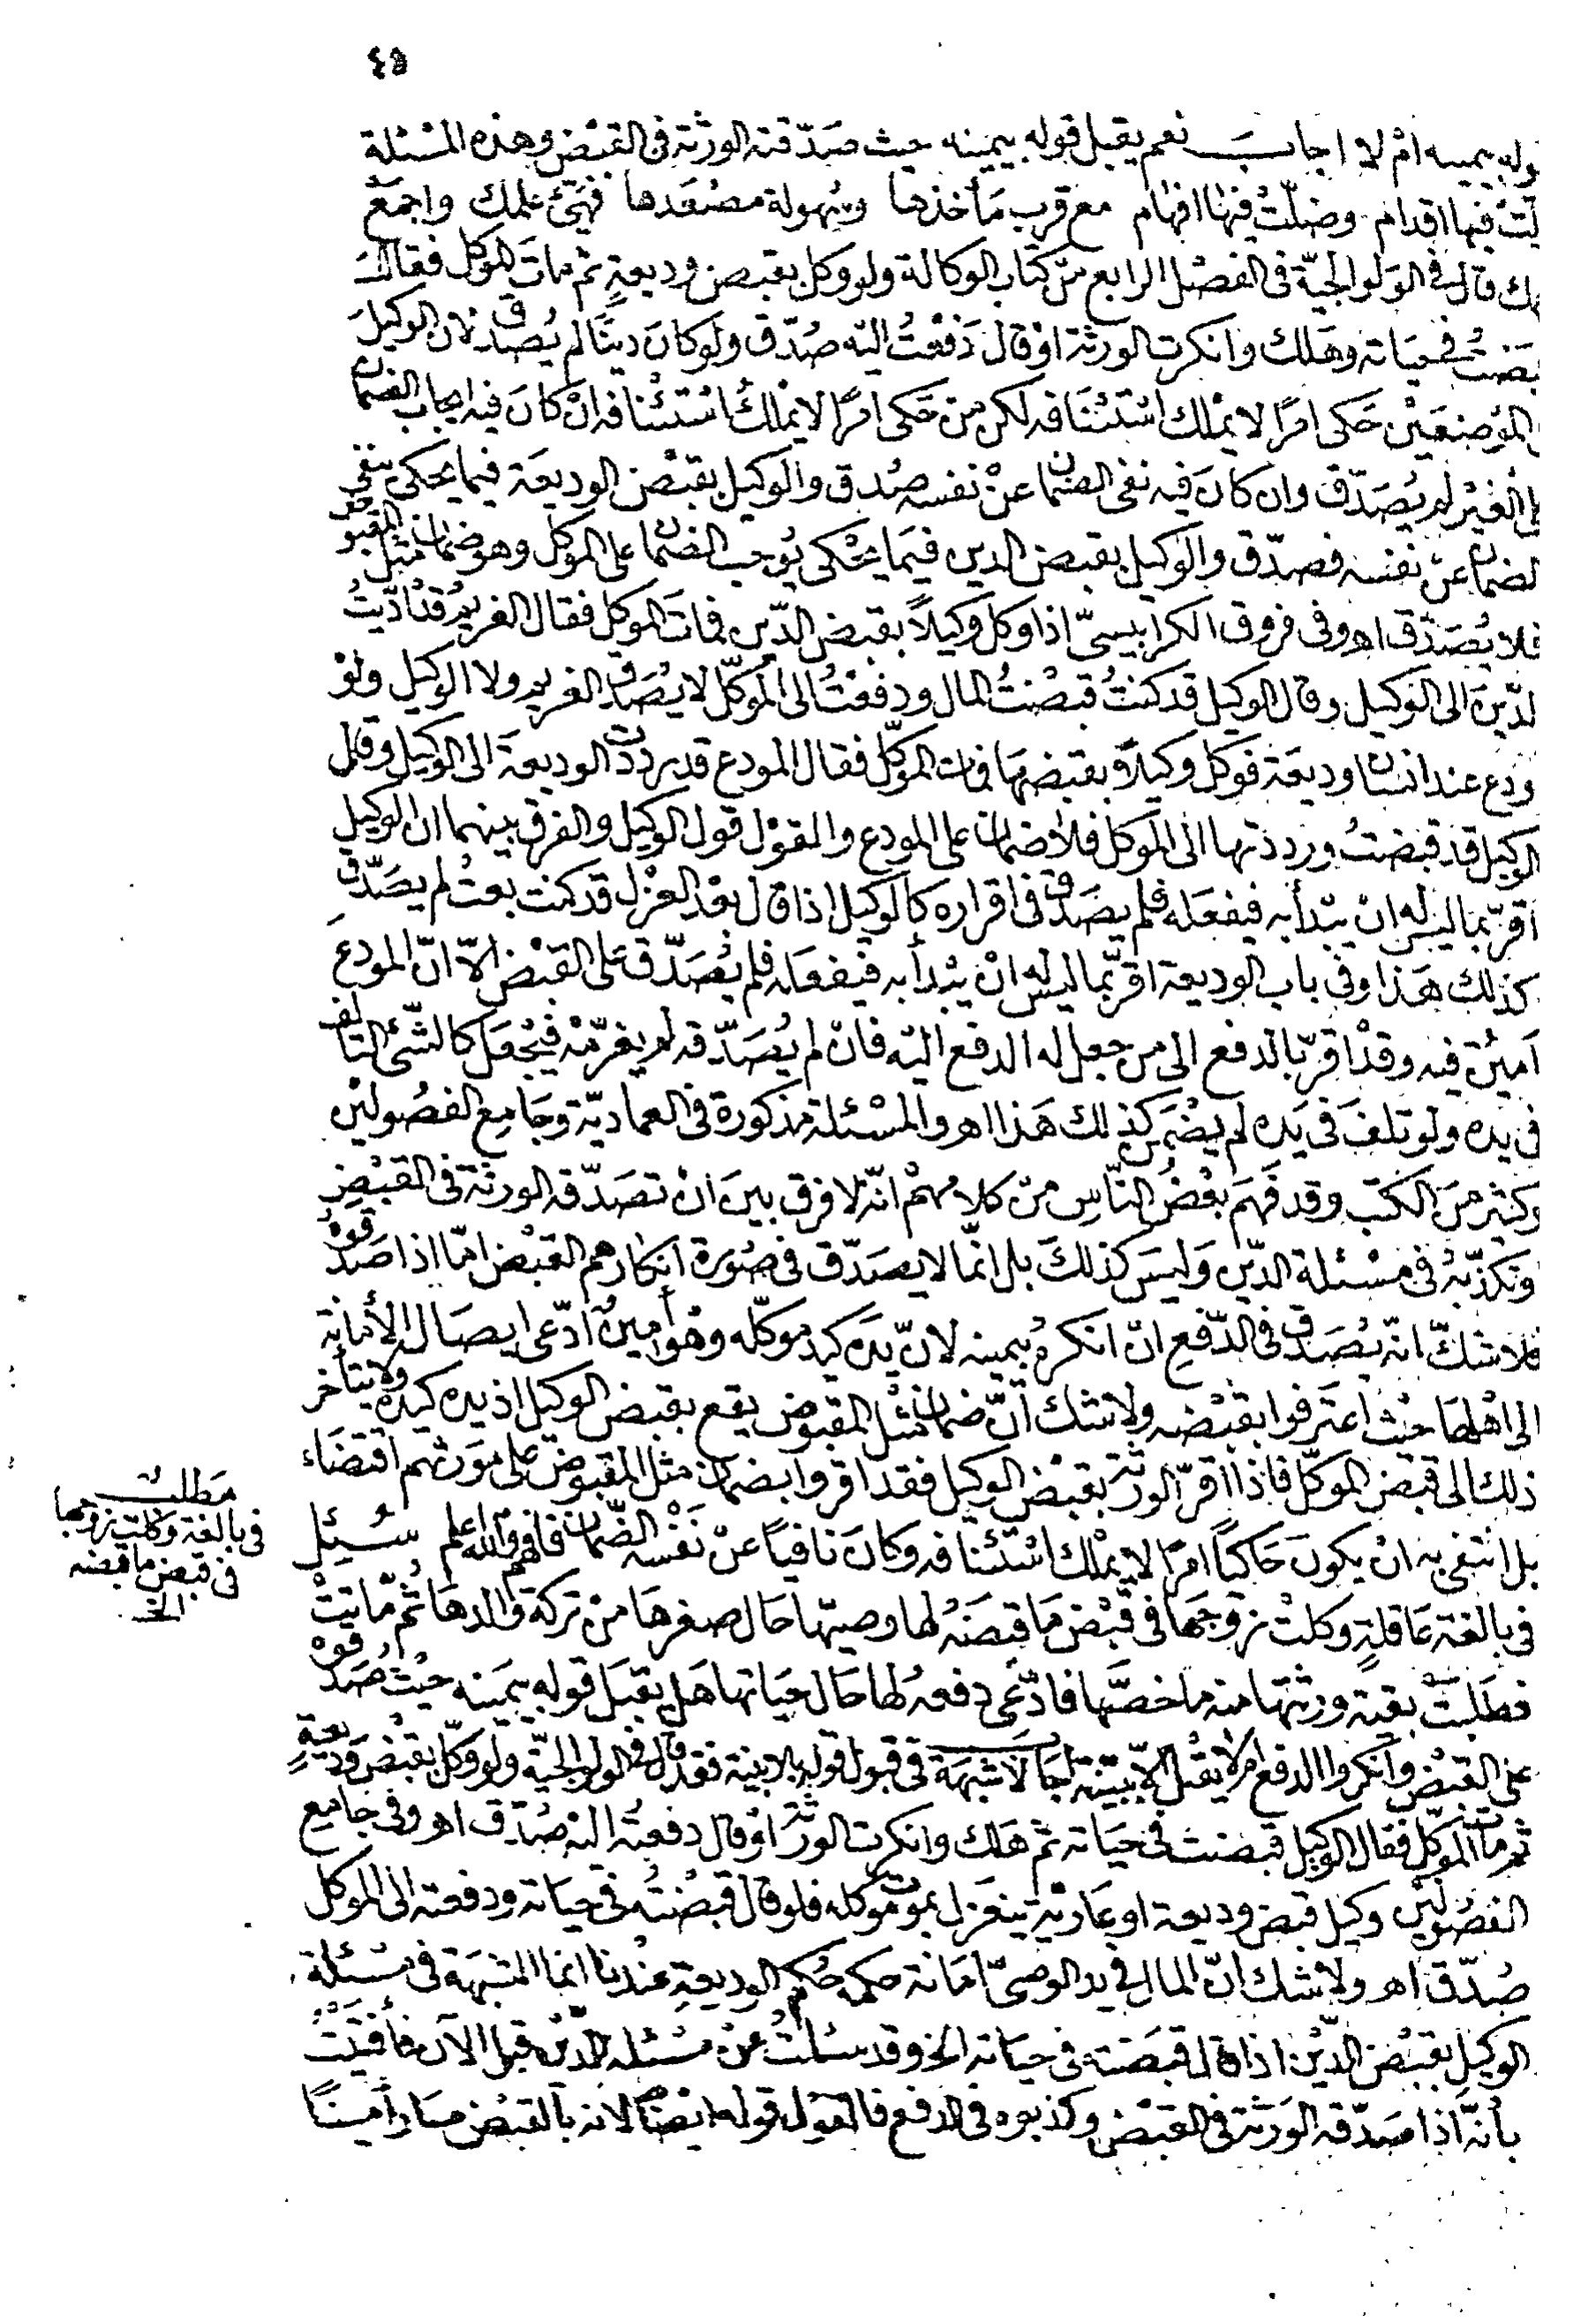 ٤٥
وله بيمينه ام لا اجاب نعم يقبل قوله بيمينه حيث صدّقته الورثة في القبض وهذه المسئلة
لّت فيها اقدام وضلّت فيها افهام مع قرب مأخذها وسهولة مصعدها فهيّئ علمك واجمع
قال في الولوالجيّة في الفصل الرابع من كتاب الوكالة ولو وكل بقبض وديعة ثم مات الموكل فقال
بضت في حياته وهلك وانكرت الورثة او قال دفعت اليه صدّق ولو كان دينًا لم يُصدق لان الوكيل
الموضعين حكى امرًا لا يملك استئنافه لكن من حكى امرًا لا يملك استئنافه ان كان فيه ايجاب الضمان
على الغير لم يُصدّق وان كان فيه نفى الضمان عن نفسه صُدق والوكيل بقبض الوديعة فيما يحكى ينفى
لضمان عن نفسه فصدّق والوكيل بقبض الدين فيما يحكى يُوجب الضمان على الموكل وهو ضمان مثل المقبوض
فلا يُصدّق اه وفى فروق الكرابيسيّ اذا وكل وكيلاً بقبض الدّين فمات الموكل فقال الغريم قد ادّيت
لدّين الى الوكيل وقال الوكيل قد كنتُ قبضتُ المال ودفعتُ الى الموكّل لا يُصَدق الغريم ولا الوكيل ولو
ودع عند انسان وديعة فوكل وكيلاً بقبضها فمات الموكّل فقال المودع قد رددت الوديعة الى الوكيل وقال
الوكيل قد قبضتُ ورددتها الى الموكل فلا ضمان على المودع والقول قول الوكيل والفرق بينهما ان الوكيل
اقرّ بما ليس له ان يبدأ به فيفعله فلم يصدق في اقراره كالوكيل اذا قال بعد العزل قد كنت بعت لم يصدّق
كذلك هذا وفى باب الوديعة اقرّ بما ليس له ان يبدأ به فيفعله فلم يُصدّق على القبض الاّ انّ المودع
امين فيه وقد اقرّ بالدفع الى من جعل له الدفع اليه فان لم يُصدّقه لم يغرّمه فيُجعل كالشّئ التالف
في يده ولو تلف في يده لم يضمن كذلك هذا اه والمسئلة مذكورة في العماديّة وجامع الفصولين
وكثير من الكتب وقد فهم بعض النّاس من كلامهم انّه لا فرق بين ان تصدّقه الورثة في القبض
وتكذّبه في مسئلة الدّين وليس كذلك بل انّما لا يصدّق في صورة انكارهم القبض امّا اذا صدّقوه
فلا شكّ انّه يُصدق في الدّفع ان انكره بيمينه لانّ يده كيد موكّله وهو امين ادّعى ايصال الأمانة
الى اهلها حيث اعترفوا بقبضه ولا شك انّ ضمان مثل المقبوض يقع بقبض الوكيل اذ يده كيده ولا يتأخر
ذلك الى قبض الموكّل فاذا اقرّ الورثة بقبض الوكيل فقد اقروا بضمان مثل المقبوض على مورثهم اقتضاء
بل انتفى به ان يكون حاكيًا امرًا لا يملك استئنافه وكان نافيًا عن نفسه الضمان فافهم والله اعلم سُئِل
في بالغة عاقلة وكلت زوجها في قبض ما قبضه لها وصيّها حال صغرها من تركة والدها ثم ماتت
فطلبت بقية ورثتها منه ما خصّها فادّعى دفعه لها حال حياتها هل يقبل قوله بيمينه حيث صدّقوه
على القبض وانكروا الدفع ام لا يقبل الاّ ببيّنة اجاب لا شبهة في قبول قوله بلا بينة فقد قال في الولوالجيّة ولو وكّل بقبض وديعةٍ
ثم مات الموكّل فقال الوكيل قبضت في حياته ثم هلك وانكرت الورثة او قال دفعته اليه صُدّق اه وفى جامع
الفصولين وكيل قبض وديعة او عارية ينعزل بموت موكله فلو قال قبضتُه في حياته ودفعته الى الموكل
صُدّق اه ولا شك انّ المال في يد الوصىّ امانة حكمه حُكم الوديعةِ عندنا انما الشبهة في مسئلة
الوكيل بقبض الدّين اذا قال قبضته في حياته الخ وقد سئلتُ عن مسئلة الدّين قبل الآن فأفتيتُ
بأنّه اذا صدّقه الورثة في القبض وكذبوه في الدفع فالقول قوله ايضًا لانه بالقبض صار أمينًا
مطلب
في بالغة وكلت زوجها
في قبض ما قبضه
الخ